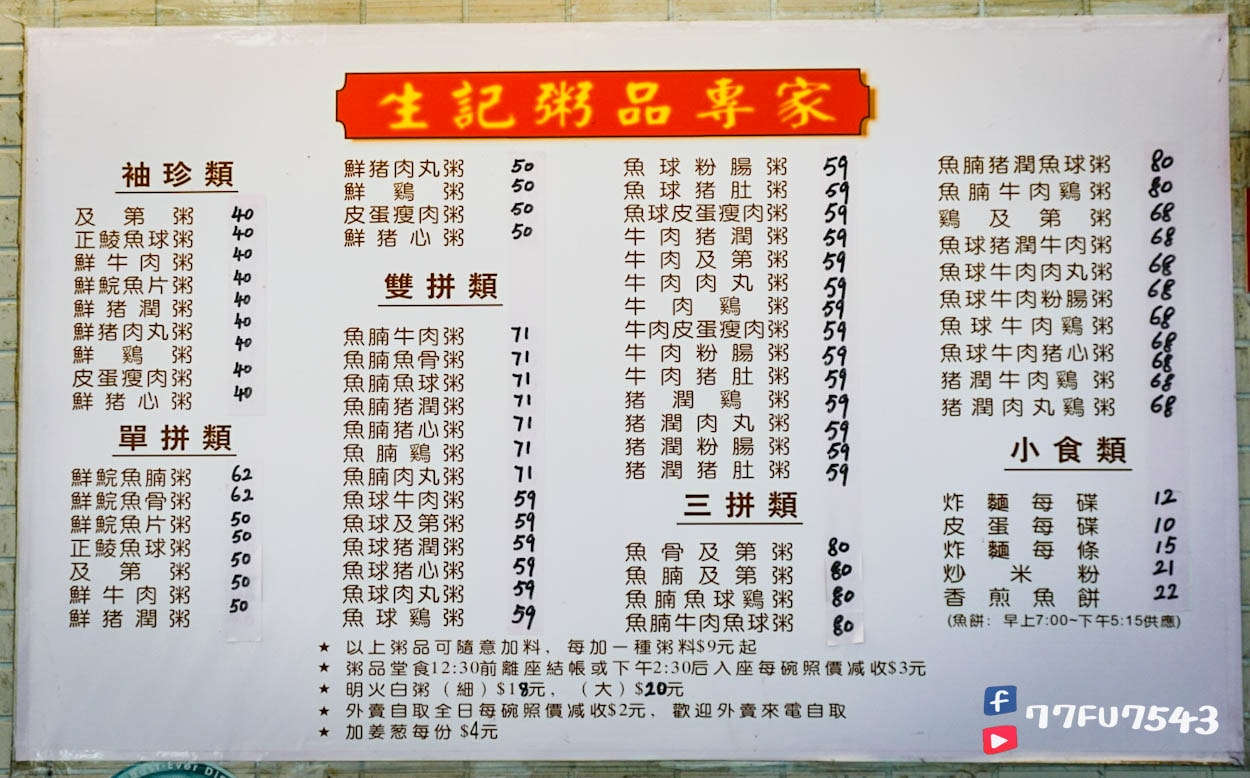 生記粥品專家
袖珍類
及第粥 40
正鯪魚球粥 40
鮮牛肉粥 40
鮮鯇魚片粥 40
鮮猪潤粥 40
鮮猪肉丸粥 40
鮮鷄粥 40
皮蛋瘦肉粥 40
鮮猪心粥 40
單拼類
鮮鯇魚腩粥 62
鮮鯇魚骨粥 62
鮮鯇魚片粥 50
正鯪魚球粥 50
及第粥 50
鮮牛肉粥 50
鮮猪潤粥 50
鮮猪肉丸粥 50
鮮鷄粥 50
皮蛋瘦肉粥 50
鮮猪心粥 50
雙拼類
魚腩牛肉粥 71
魚腩魚骨粥 71
魚腩魚球粥 71
魚腩猪潤粥 71
魚腩猪心粥 71
魚腩鷄粥 71
魚腩肉丸粥 71
魚球牛肉粥 59
魚球及第粥 59
魚球猪潤粥 59
魚球猪心粥 59
魚球肉丸粥 59
魚球鷄粥 59
魚球粉腸粥 59
魚球猪肚粥 59
魚球皮蛋瘦肉粥 59
牛肉猪潤粥 59
牛肉及第粥 59
牛肉肉丸粥 59
牛肉鷄粥 59
牛肉皮蛋瘦肉粥 59
牛肉粉腸粥 59
牛肉猪肚粥 59
猪潤鷄粥 59
猪潤肉丸粥 59
猪潤粉腸粥 59
猪潤猪肚粥 59
三拼類
魚骨及第粥 80
魚腩及第粥 80
魚腩魚球鷄粥 80
魚腩牛肉魚球粥 80
魚腩猪潤魚球粥 80
魚腩牛肉鷄粥 80
鷄及第粥 68
魚球猪潤牛肉粥 68
魚球牛肉肉丸粥 68
魚球牛肉粉腸粥 68
魚球牛肉鷄粥 68
魚球牛肉猪心粥 68
猪潤牛肉鷄粥 68
猪潤肉丸鷄粥 68
小食類
炸麵每碟 12
皮蛋每碟 10
炸麵每條 15
炒米粉 21
香煎魚餅 22
(魚餅: 早上7:00~下午5:15供應)
★ 以上粥品可隨意加料，每加一種粥料$9元起
★ 粥品堂食12:30前離座結帳或下午2:30后入座每碗照價减收$3元
★ 明火白粥（細）$18元，（大）$20元
★ 外賣自取全日每碗照價减收$2元，歡迎外賣來電自取
★ 加姜葱每份 $4元
77FU7543